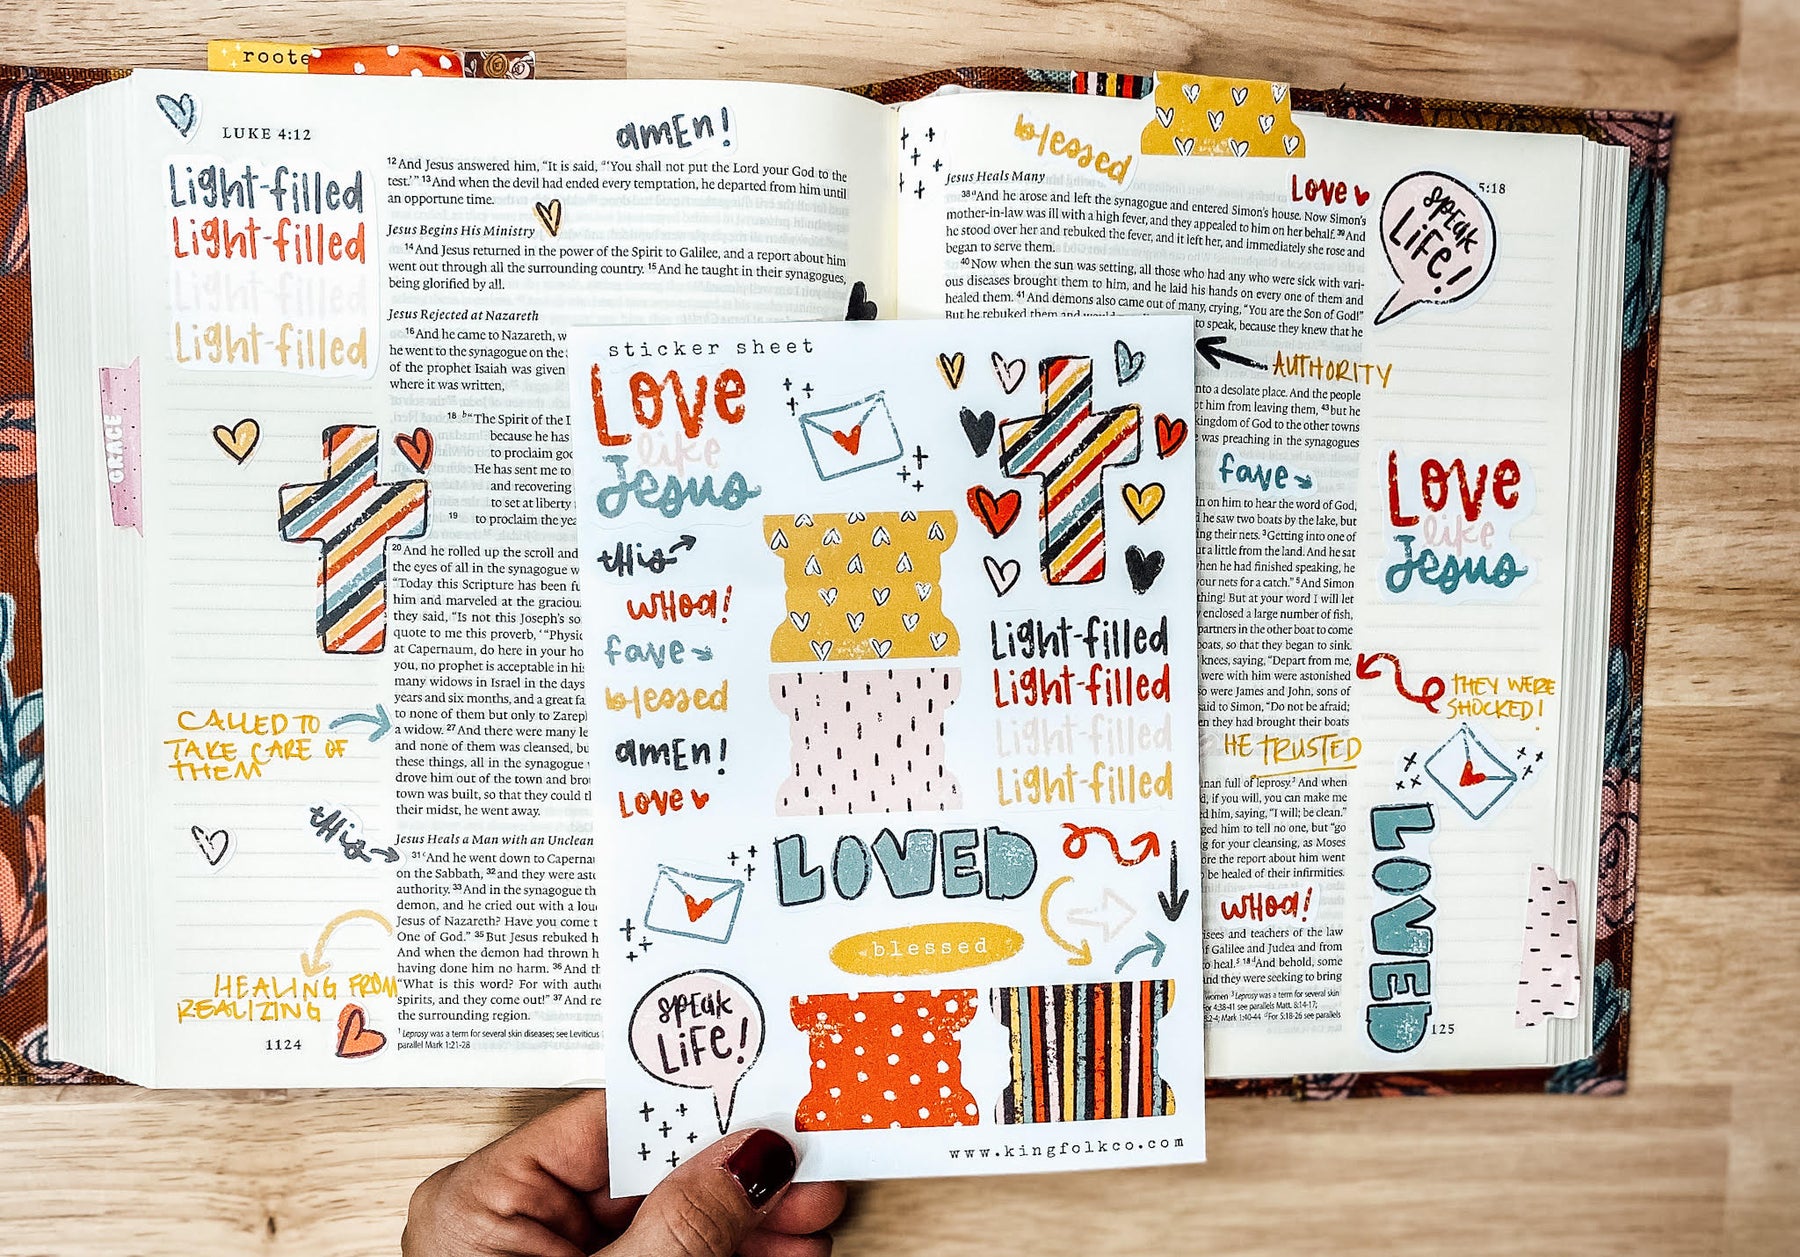 roote
LUKE 4:12
amEn!
Light-filled
Light-filled
Light-filled
Light-filled
GRACE
12 And Jesus answered him, “It is said, “‘You shall not put the Lord your God to the
test.’” 13 And when the devil had ended every temptation, he departed from him until
an opportune time.
Jesus Begins His Ministry
14 And Jesus returned in the power of the Spirit to Galilee, and a report about him
went out through all the surrounding country. 15 And he taught in their synagogues,
being glorified by all.
Jesus Rejected at Nazareth
16 And he came to Nazareth, w
he went to the synagogue on the
of the prophet Isaiah was given
where it was written,
18 b “The Spirit of the L
because he has
to proclaim goo
He has sent me to
and recovering
to set at liberty
19 to proclaim the yea
20 And he rolled up the scroll and
the eyes of all in the synagogue w
“Today this Scripture has been fu
him and marveled at the graciou
they said, “Is not this Joseph’s so
quote to me this proverb, ‘“Physic
at Capernaum, do here in your ho
you, no prophet is acceptable in his
many widows in Israel in the days
years and six months, and a great fa
to none of them but only to Zareph
a widow. 27 And there were many le
and none of them was cleansed, bu
these things, all in the synagogue
drove him out of the town and bro
town was built, so that they could th
their midst, he went away.
Jesus Heals a Man with an Unclean
31 And he went down to Caperna
on the Sabbath, 32 and they were asto
authority. 33 And in the synagogue th
demon, and he cried out with a lou
Jesus of Nazareth? Have you come t
One of God.” 35 But Jesus rebuked h
And when the demon had thrown h
having done him no harm. 36 And th
“What is this word? For with autho
spirits, and they come out!” 37 And re
the surrounding region.
1 Leprosy was a term for several skin diseases; see Leviticus
parallel Mark 1:21-28
CALLED TO
TAKE CARE OF
THEM
this
HEALING FROM
REALIZING
1124
blessed
Love
5:18
speak
LiFe!
Jesus Heals Many
38 And he arose and left the synagogue and entered Simon’s house. Now Simon’s
mother-in-law was ill with a high fever, and they appealed to him on her behalf. 39 And
he stood over her and rebuked the fever, and it left her, and immediately she rose and
began to serve them.
40 Now when the sun was setting, all those who had any who were sick with vari-
ous diseases brought them to him, and he laid his hands on every one of them and
healed them. 41 And demons also came out of many, crying, “You are the Son of God!”
But he rebuked them and
to speak, because they knew that he
AUTHORITY
nto a desolate place. And the people
him from leaving them, 43 but he
kingdom of God to the other towns
was preaching in the synagogues
fave
Love
like
Jesus
in on him to hear the word of God,
he saw two boats by the lake, but
ing their nets. 3 Getting into one of
ut a little from the land. And he sat
hen he had finished speaking, he
your nets for a catch.” 5 And Simon
thing! But at your word I will let
enclosed a large number of fish,
partners in the other boat to come
boats, so that they began to sink.
knees, saying, “Depart from me,
were with him were astonished
so were James and John, sons of
said to Simon, “Do not be afraid;
n they had brought their boats
THEY WERE
SHOCKED!
HE TRUSTED
nan full of leprosy. And when
, if you will, you can make me
him, saying, “I will; be clean.”
ged him to tell no one, but “go
g for your cleansing, as Moses
ore the report about him went
be healed of their infirmities.
whoa!
isees and teachers of the law
of Galilee and Judea and from
to heal. 18 And behold, some
and they were seeking to bring
women 3 Leprosy was a term for several skin
For 4:38-41 see parallels Matt. 8:14-17;
Mark 1:40-44 For 5:18-26 see parallels
LOVED
125
sticker sheet
Love
like
Jesus
this
whoa!
fave
blessed
amEn!
Love
Light-filled
Light-filled
Light-filled
Light-filled
LOVED
blessed
speak
LiFe!
www.kingfolkco.com